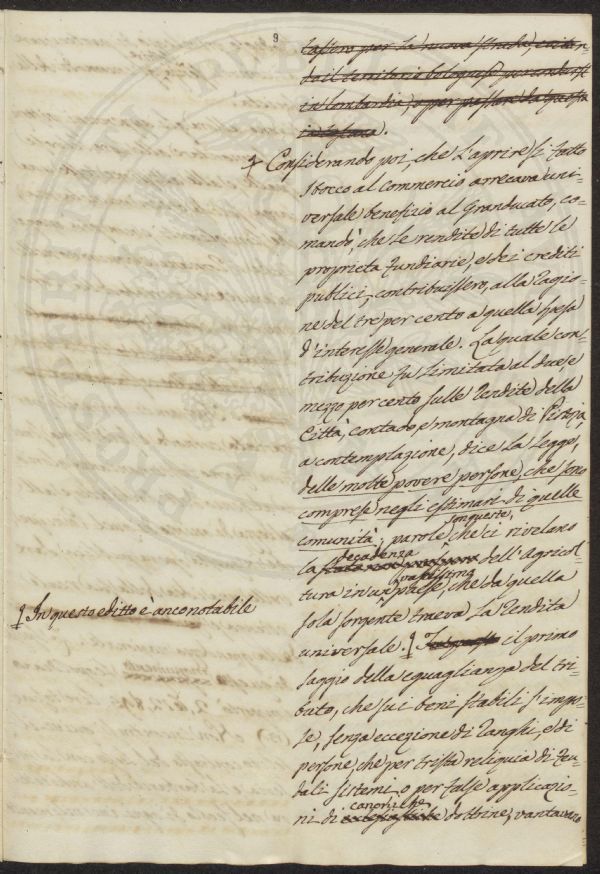 9
tassero per la nuova strada, evitan-
do il territorio bolognese per condursi
in lombardia, o per passare da questa
in toscana.
Considerando poi, che l'aprire sì fatto
sbocco al commercio arrecava uni-
versale benefizio al Granducato, co-
mandò, che le rendite di tutte le
proprietà fundiarie, e dei crediti
publici, contribuissero, alla ragio-
ne del tre per cento a quella spesa
d'interesse generale. La quale con-
tribuzione fu limitata al due, e
mezzo per cento sulle rendite della
Città, contado, e montagna di Pistoja,
a contemplazione, dice la legge,
delle molte povere persone, che sono
comprese negli estimari di quelle
comunità; parole
son queste,
che ci rivelano
la
decadenza
dell'Agricol-
tura in un
vastissimo
paese, che da quella
sola sorgente traeva la rendita
universale.
In questo editto è anco notabile
In questo il primo
saggio della eguaglianza del tri-
buto, che sui beni stabili s'impo-
se, senza eccezione di ranghi, e di
persone, che per trista reliquia di feu-
dali sistemi, o per false applicazio-
ni di
canoniche
dottrine, vantavano